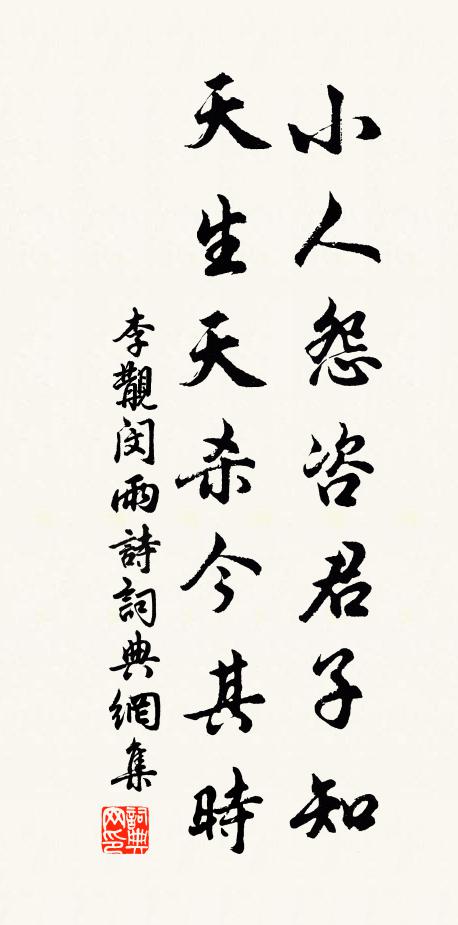 小人怨咨君子知
天生天杀今其時
李觏闵雨詩詞典網集
詞典网印